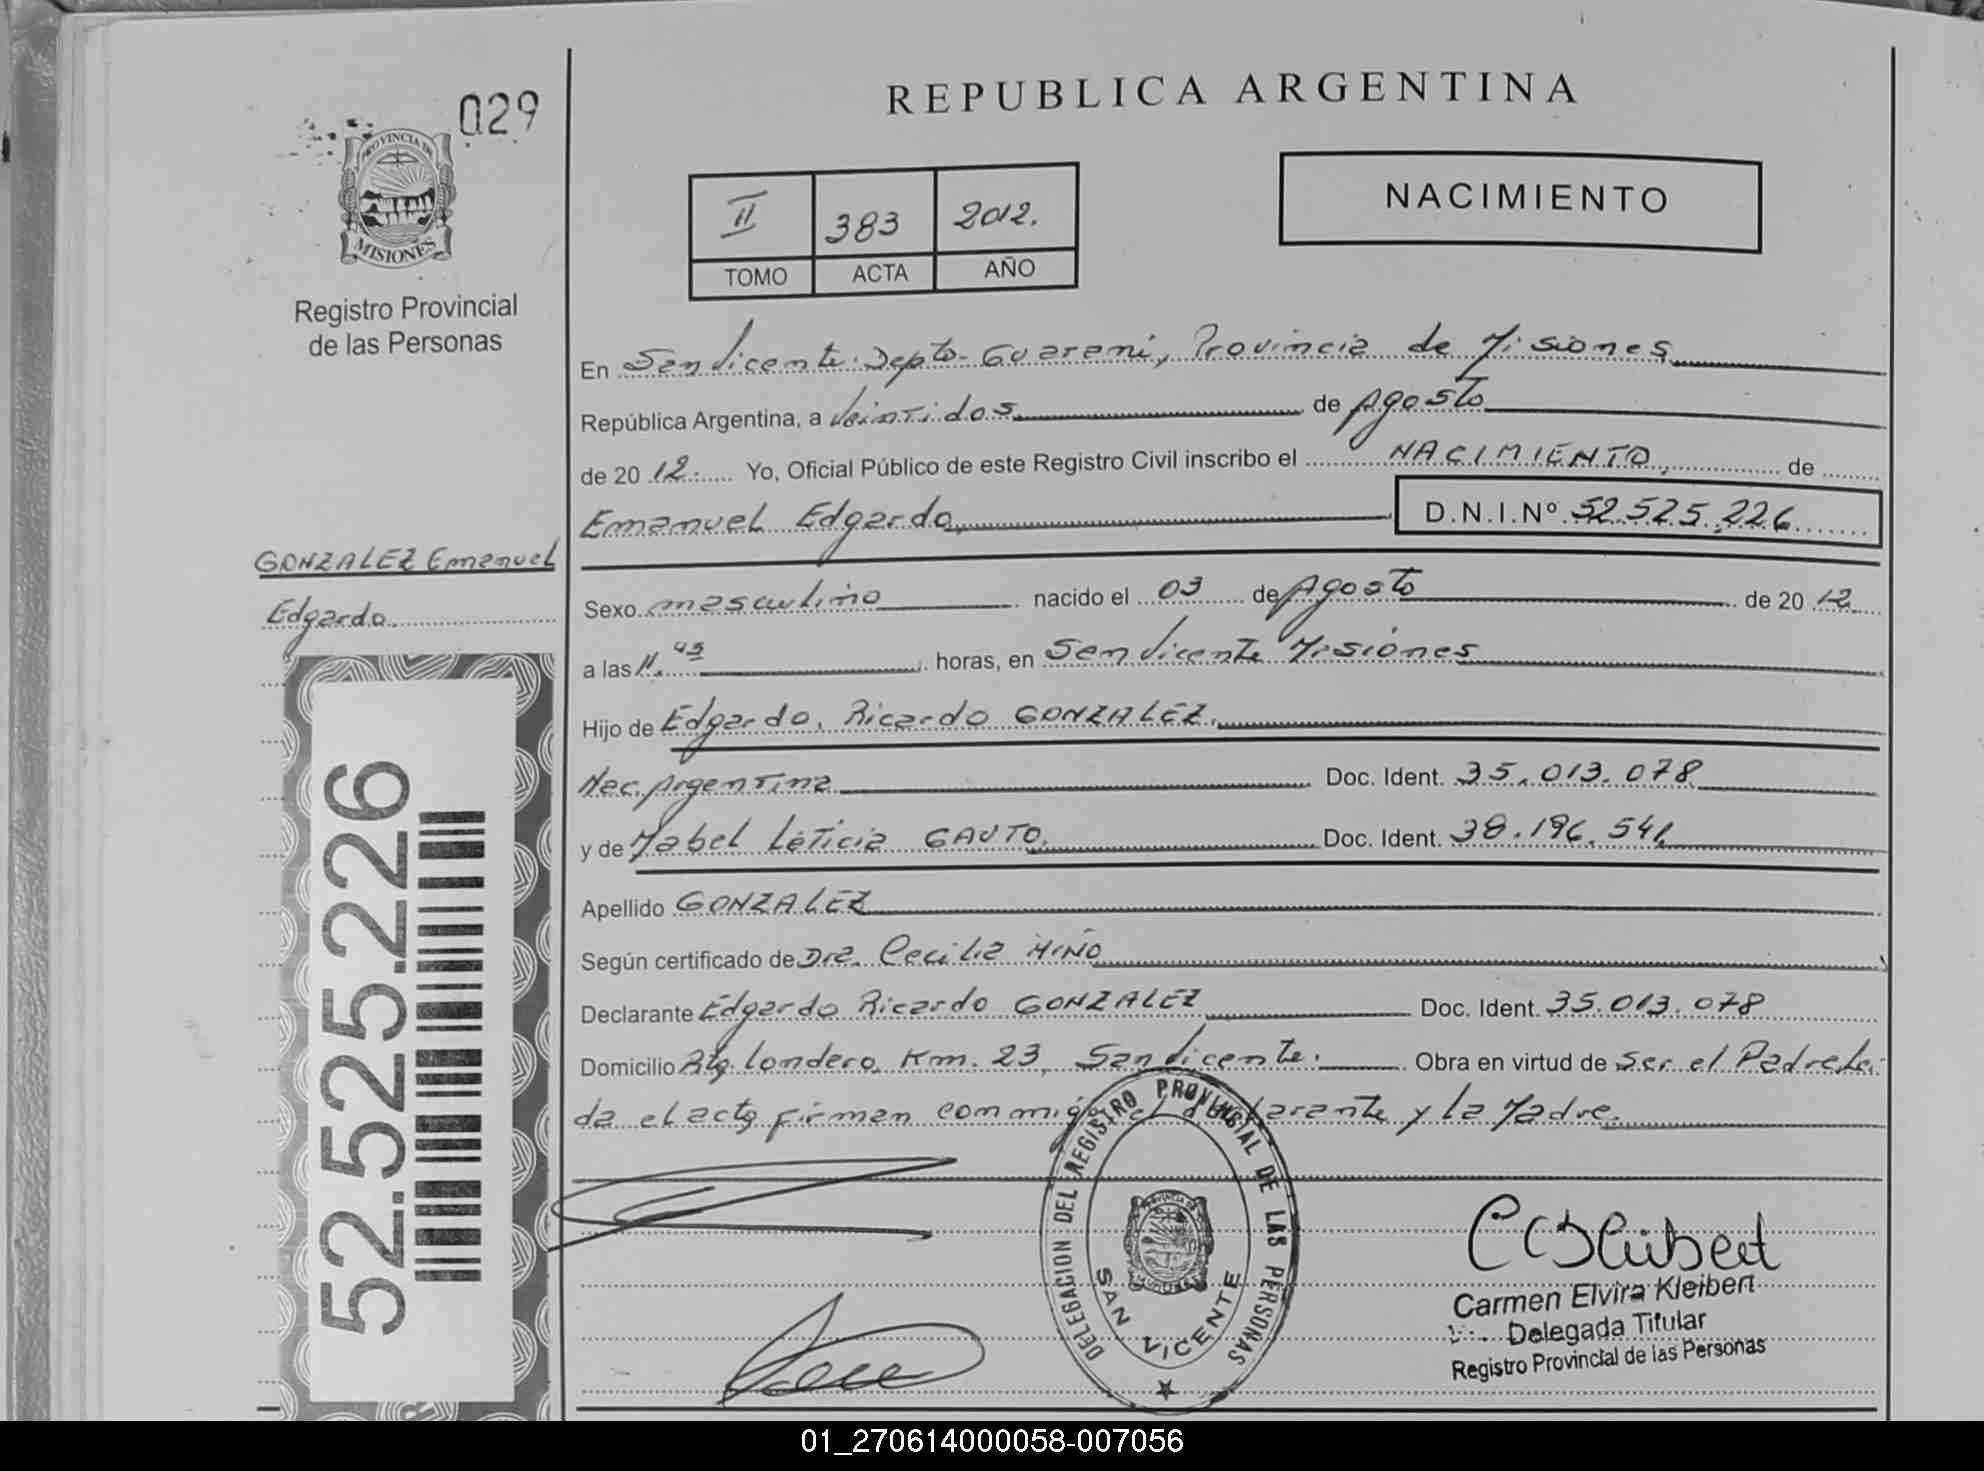 029
PROVINCIA DE
MISIONES
Registro Provincial
de las Personas
REPUBLICA ARGENTINA
II 383 2012.
TOMO ACTA AÑO
NACIMIENTO
En San Vicente. Depto. Guarani, Provincia de Misiones
República Argentina, a Veintidos de Agosto
de 20 12. Yo, Oficial Público de este Registro Civil inscribo el NACIMIENTO, de
Emanuel Edgardo, D.N.I.Nº 52.525.226
GONZALEZ Emanuel
Edgardo.
Sexo masculino nacido el 03 de Agosto de 20 12
a las 11.45 horas, en San Vicente Misiones
Hijo de Edgardo, Ricardo GONZALEZ.
Nac. Argentina Doc. Ident. 35.013.078
y de Mabel Leticia GAUTO. Doc. Ident. 38.196.541
Apellido GONZALEZ
Según certificado de Dra. Cecilia MIÑO
Declarante Edgardo Ricardo GONZALEZ Doc. Ident. 35.013.078
Domicilio Londero, Km. 23, San Vicente. Obra en virtud de Ser el Padre Lei
da el acta firman conmigo el declarante y la Madre.
52.525.226
DELEGACION DEL REGISTRO PROVINCIAL DE LAS PERSONAS
SAN VICENTE
Carmen Elvira Kleibert
Delegada Titular
Registro Provincial de las Personas
01_270614000058-007056